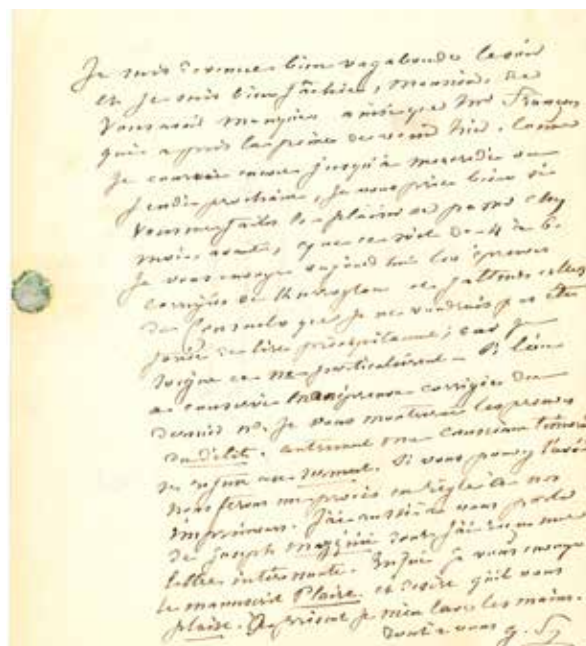 Je suis devenue bien vagabonde le soir
et je suis bien fâchée, Monsieur, de
vous avoir manqué, ainsi que Mr François
qui a pris la peine de venir hier. Comme
je courrai encore jusqu'à mercredi ou
jeudi prochain, je vous prie bien si
vous me faites le plaisir de passer chez
moi avant, que ce soit de 4 à 6.
Je vous envoye aujourd'hui les épreuves
corrigées de et j'attends celles
de Consuelo que je ne voudrais pas être
forcée de lire précipitamment, car je
soigne ce no particulièrement. Si l'on
a conservé l'épreuve corrigée du
dernier no, je vous montrerai les preuves
du délit, autrement ma
se refuse au serment. Si vous pouvez l'avoir
nous ferons un procès en règle à nos
imprimeurs. J'ai aussi à vous parler
de Joseph Mazzini dont j'ai reçu une
lettre intéressante. Enfin je vous envoye
le manuscrit Plaire et désire qu'il vous
plaise. à présent je m'en lave les mains.
Tout à vous G. S.